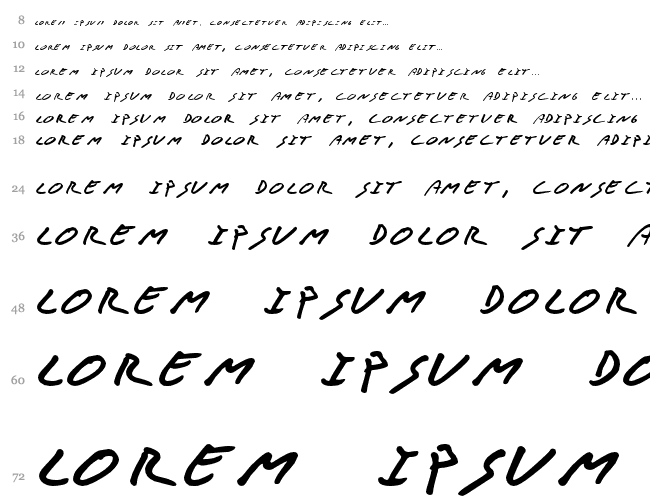 8 LOREM IPSUM DOLOR SIT AMET, CONSECTETVER ADIPISCING ELIT...
10 LOREM IPSUM DOLOR SIT AMET, CONSECTETVER ADIPISCING ELIT...
12 LOREM IPSUM DOLOR SIT AMET, CONSECTETVER ADIPISCING ELIT...
14 LOREM IPSUM DOLOR SIT AMET, CONSECTETVER ADIPISCING ELIT...
16 LOREM IPSUM DOLOR SIT AMET, CONSECTETVER ADIPISCING
18 LOREM IPSUM DOLOR SIT AMET, CONSECTETVER ADIPI
24 LOREM IPSUM DOLOR SIT AMET, CONSECT
36 LOREM IPSUM DOLOR SIT A
48 LOREM IPSUM DOLOR
60 LOREM IPSUM DO
72 LOREM IPSUM